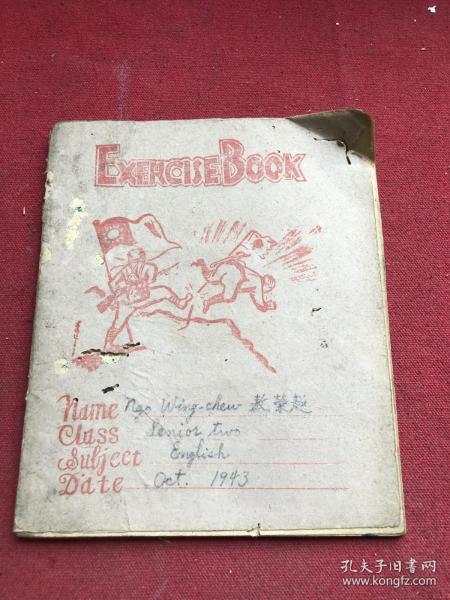 EXERCISE BOOK
Name Ngo Wing-chew 敖榮超
Class Senior two
Subject English
Date Oct. 1943
孔夫子旧书网
www.kongfz.com